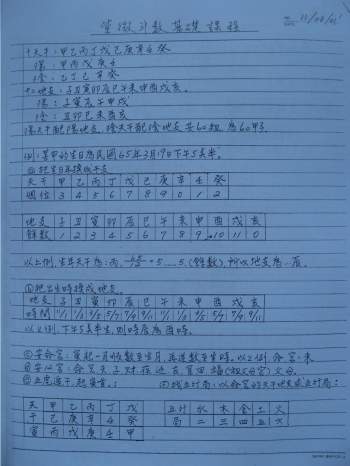 紫微斗數基礎課程
十天干：甲乙丙丁戊己庚辛壬癸
陽：甲丙戊庚壬
陰：乙丁己辛癸
十二地支：子丑寅卯辰巳午未申酉戌亥。
陽：子寅辰午申戌
陰：丑卯巳未酉亥
陽天干配陽地支，陰天干配陰地支 共60組 為60甲子
例：某甲的生日為民國65年3月19日下午5點半。
①把生日年換成干支
天干 甲 乙 丙 丁 戊 己 庚 辛 壬 癸
個位 3 4 5 6 7 8 9 0 1 2
地支 子 丑 寅 卯 辰 巳 午 未 申 酉 戌 亥
餘數 1 2 3 4 5 6 7 8 9 10 11 0
以上例，生年天干為：丙，=5……5（餘數），所以地支為：辰。
②把出生時換成地支。
地支 子 丑 寅 卯 辰 巳 午 未 申 酉 戌 亥
時間 11/1 1/3 3/5 5/7 7/9 9/11 11/1 1/3 3/5 5/7 7/9 9/11
以上例，下午5點半生，則時辰為酉時。
③安命宮：寅起一月順數至生月，再逆數至生時。以上例，命宮：未
天 甲 乙 丙 丁 戊
干 己 庚 辛 壬 癸
寅 丙 戊 庚 壬 甲
五行 水 木 金 土 火
局 二 三 四 五 六